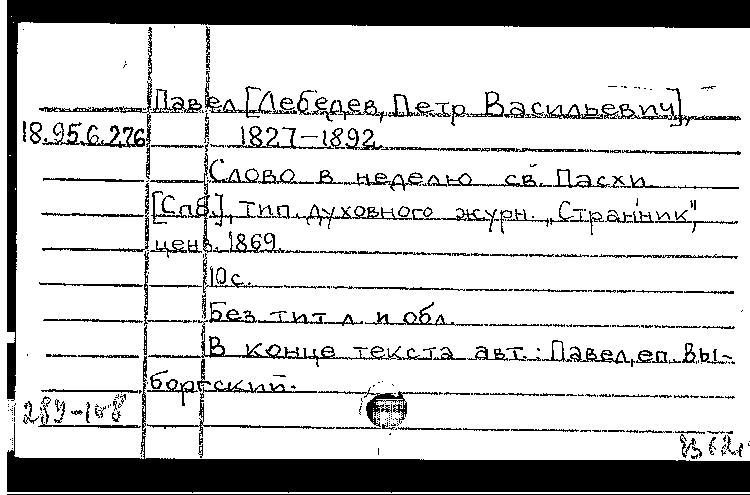 Павел [Лебедев, Петр Васильевич],
18.95.6.276 1827-1892.
Слово в неделю св. Пасхи.
[Спб.], тип. духовного журн. „Странник",
ценз. 1869.
10 с.
Без тит. л. и обл.
В конце текста авт.: Павел, еп. Вы-
боргский.
289-108